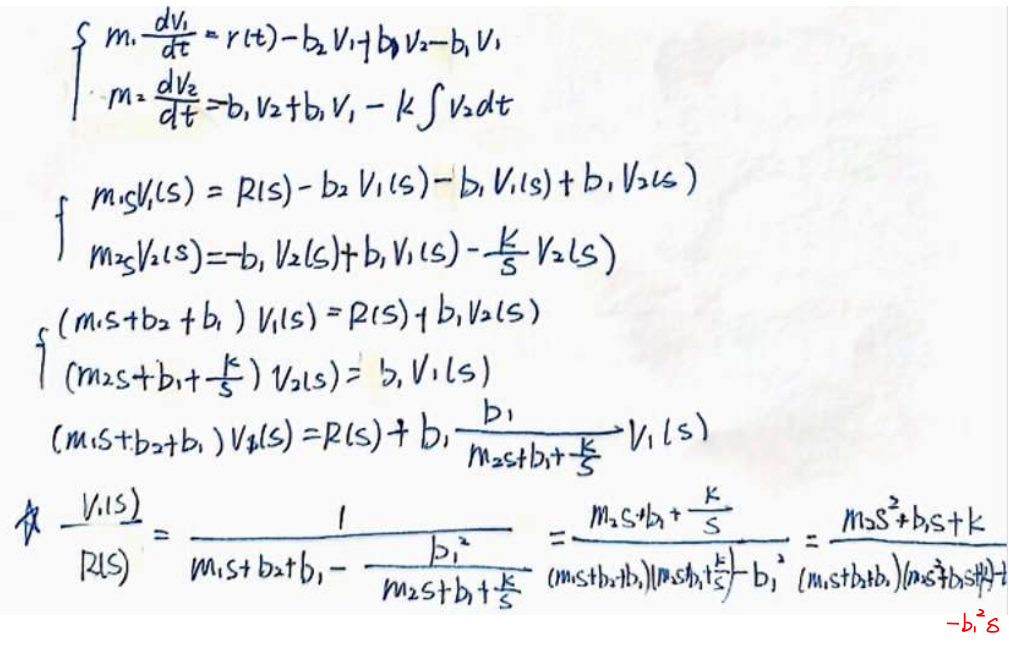 m₁ dv₁/dt = r(t) - b₂ V₁ + b₁ V₂ - b₁ V₁
m₂ dv₂/dt = -b₁ V₂ + b₁ V₁ - k ∫ V₂ dt
m₁sV₁(s) = R(s) - b₂ V₁(s) - b₁ V₁(s) + b₁ V₂(s)
m₂sV₂(s) = -b₁ V₂(s) + b₁ V₁(s) - k/s V₂(s)
(m₁s + b₂ + b₁) V₁(s) = R(s) + b₁ V₂(s)
(m₂s + b₁ + k/s) V₂(s) = b₁ V₁(s)
(m₁s + b₂ + b₁) V₁(s) = R(s) + b₁ b₁/(m₂s + b₁ + k/s) V₁(s)
☆ V₁(s)/R(s) = 1/(m₁s + b₂ + b₁ - b₁²/(m₂s + b₁ + k/s)) = (m₂s + b₁ + k/s)/((m₁s + b₂ + b₁)(m₂s + b₁ + k/s) - b₁²) = (m₂s² + b₁s + k)/((m₁s + b₂ + b₁)(m₂s² + b₁s + k) -
-b₁²s